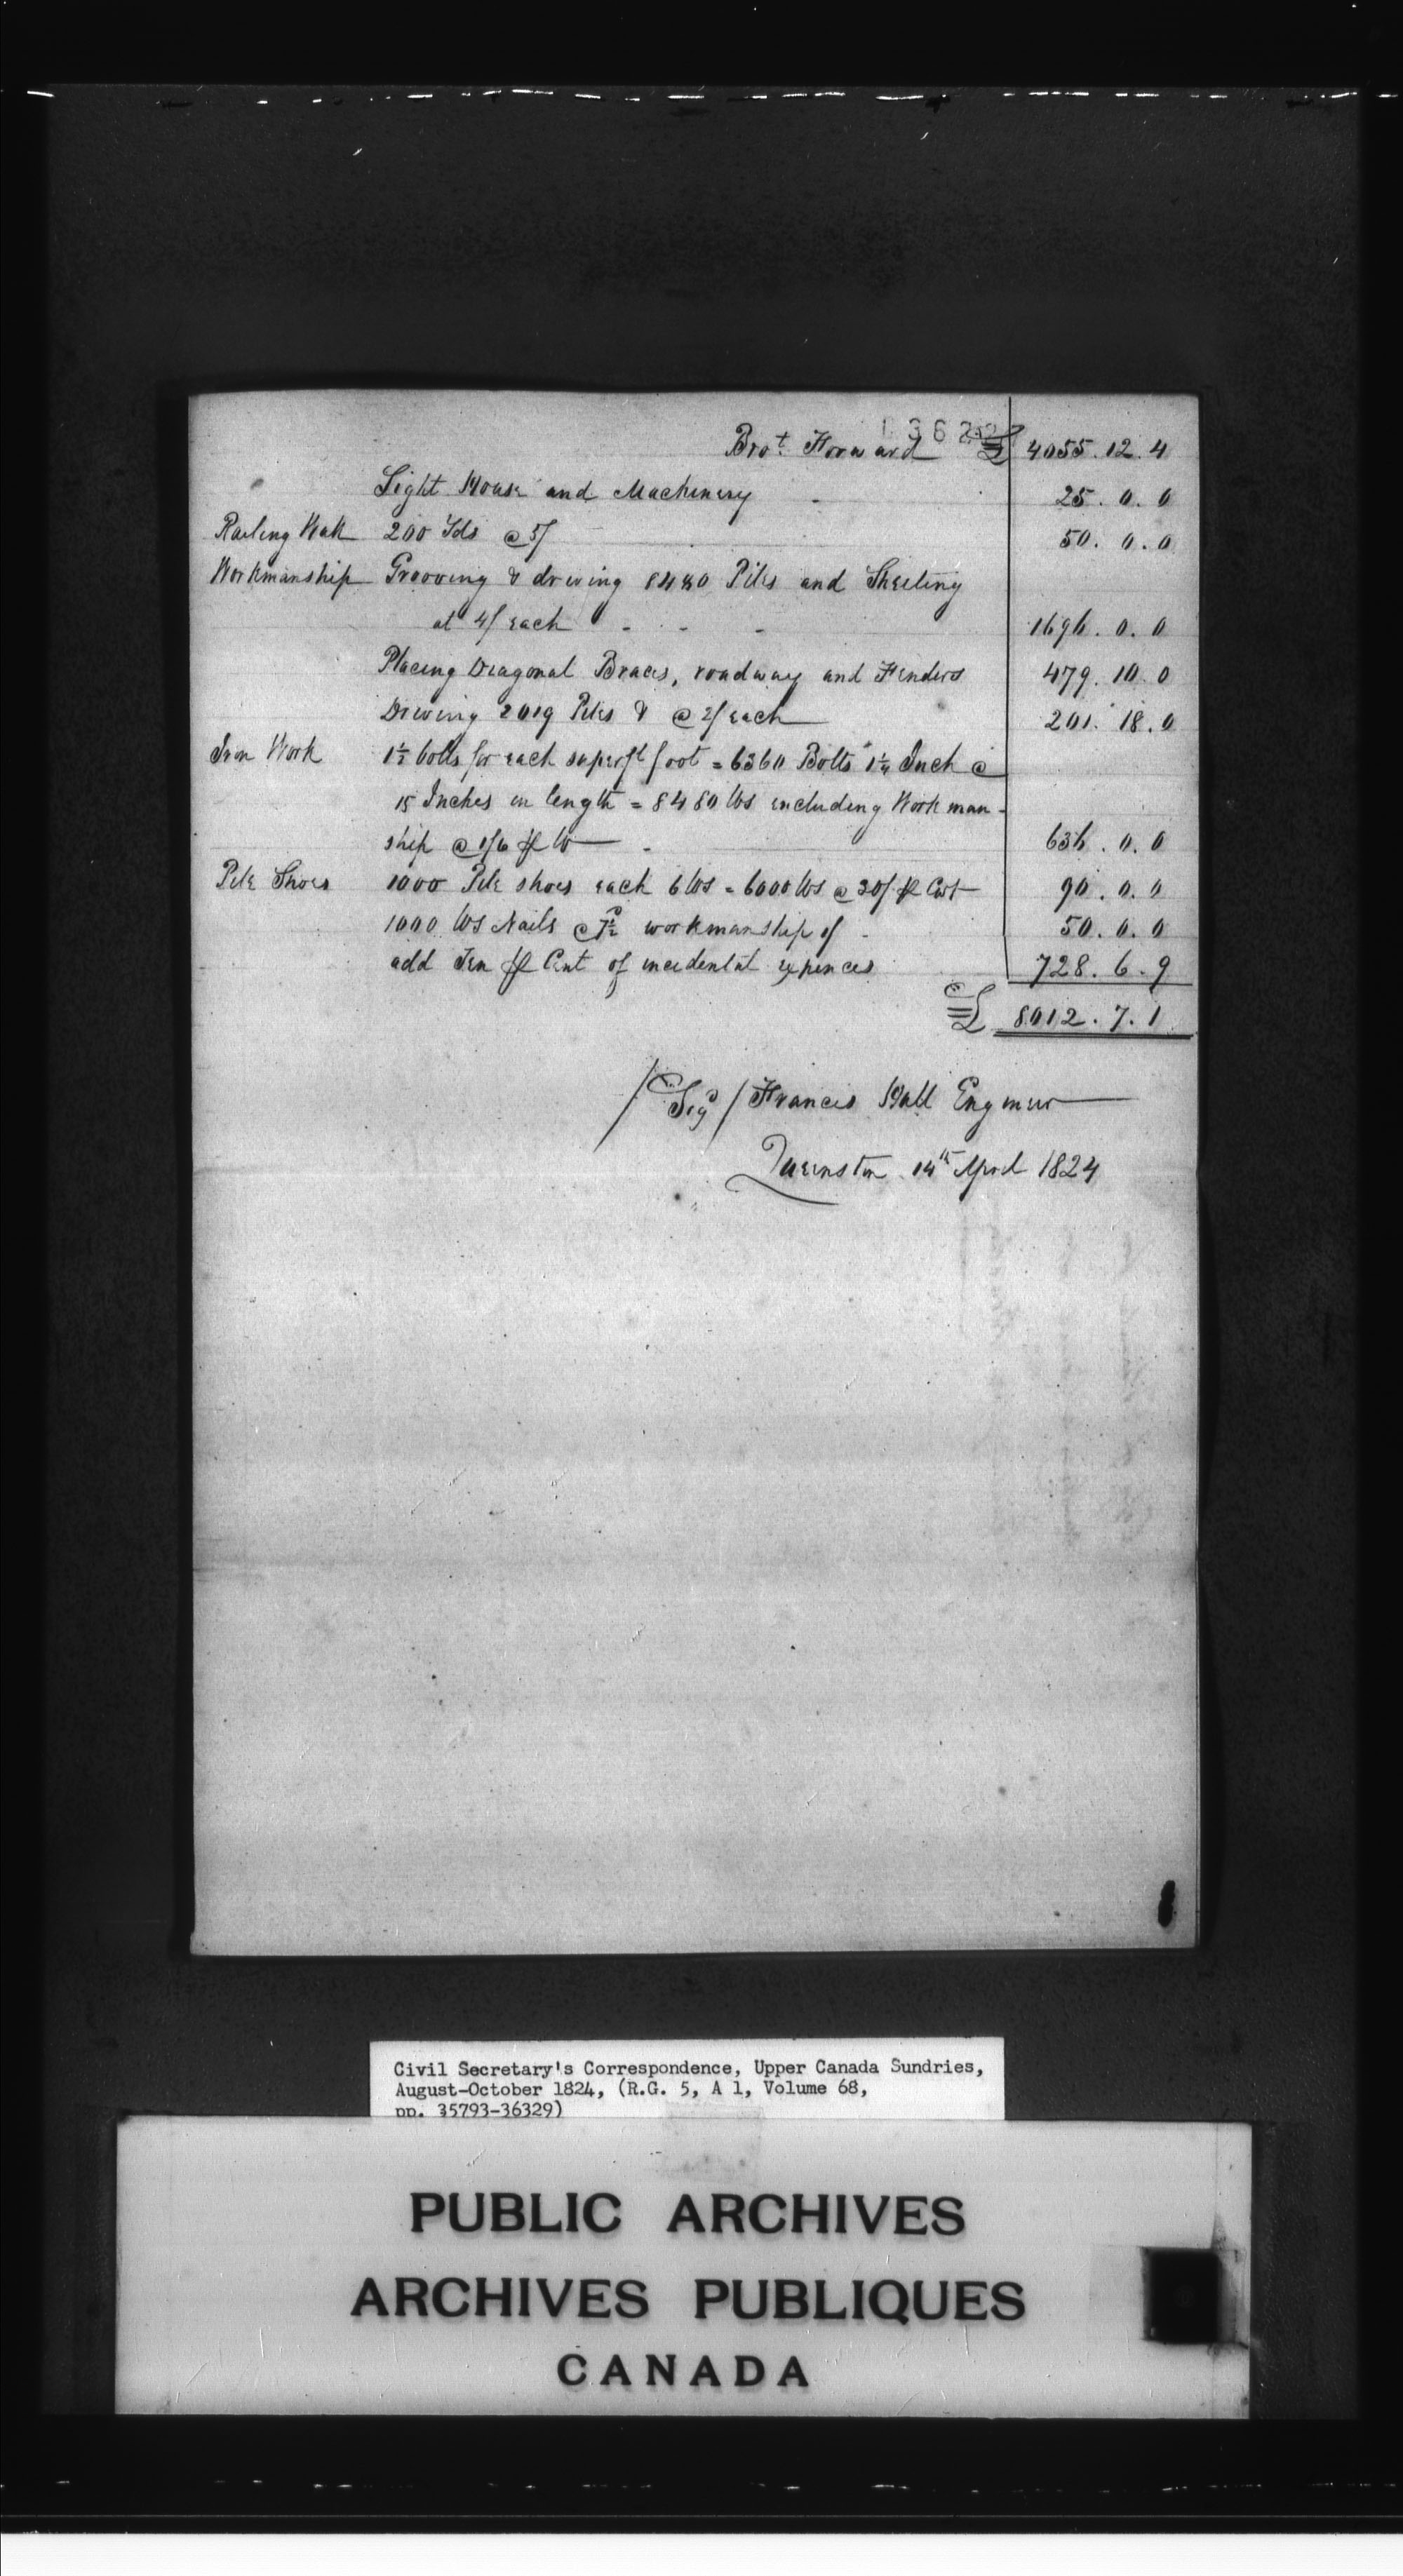 Brot. Forward £ 4055.12.4
Light House and Machinery - 25.0.0
Railing Wall 200 Yds @ 5/ 50.0.0
Workmanship Grooving & driving 8480 Piles and Sheeting
at 4/ each - - - 1696.0.0
Placing Diagonal Braces, roadway and Fenders 479.10.0
Driving 2019 Piles & @ 2/ each 201.18.0
Iron Work 1½ bolts for each superfl foot = 6360 Bolts 1¼ Inch @
15 Inches in length = 8480 lbs including Workman-
ship @ 1/6 ⅌ lb - 636.0.0
Pile Shoes 1000 Pile shoes each 6 lbs = 6000 lbs @ 30/ ⅌ Cwt 90.0.0
1000 lbs Nails @ 7½ workmanship of - 50.0.0
add Ten ⅌ Cent of incidental expences 728.6.9
£ 8012.7.1
/Sigd/ Francis Hall Engineer
Queenston 14th April 1824
Civil Secretary's Correspondence, Upper Canada Sundries,
August-October 1824, (R.G. 5, A 1, Volume 68,
pp. 35793-36329)
PUBLIC ARCHIVES
ARCHIVES PUBLIQUES
CANADA